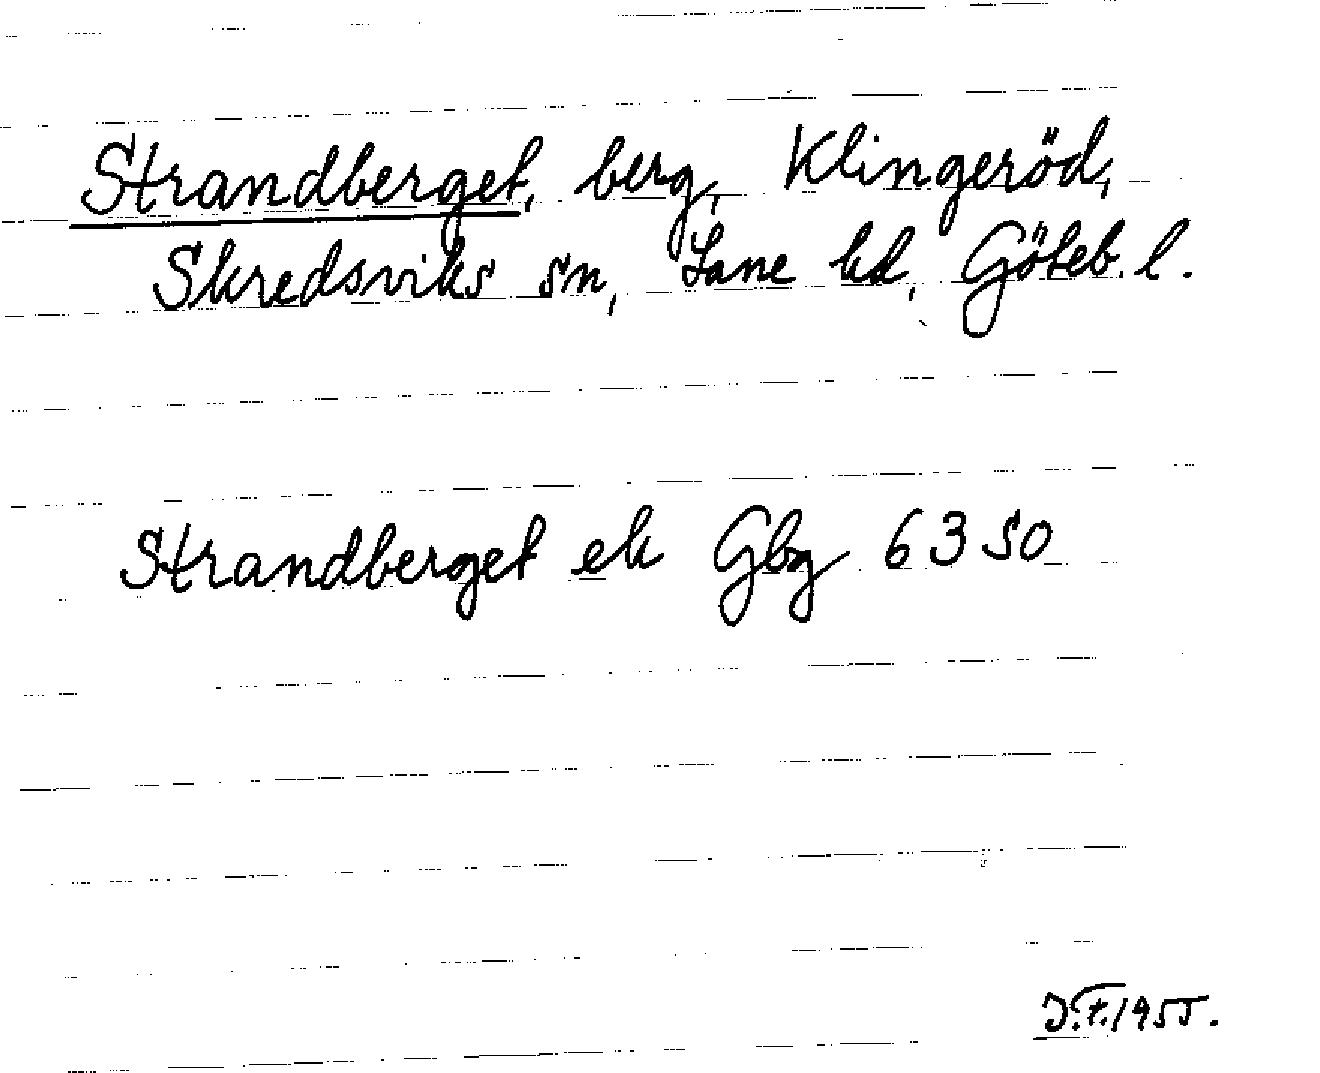 Strandberget, berg, Klingeröd,
Skredsviks sn, Lane hd, Göteb. l.
Strandberget ek Gbg 6350
J.F. 1955.